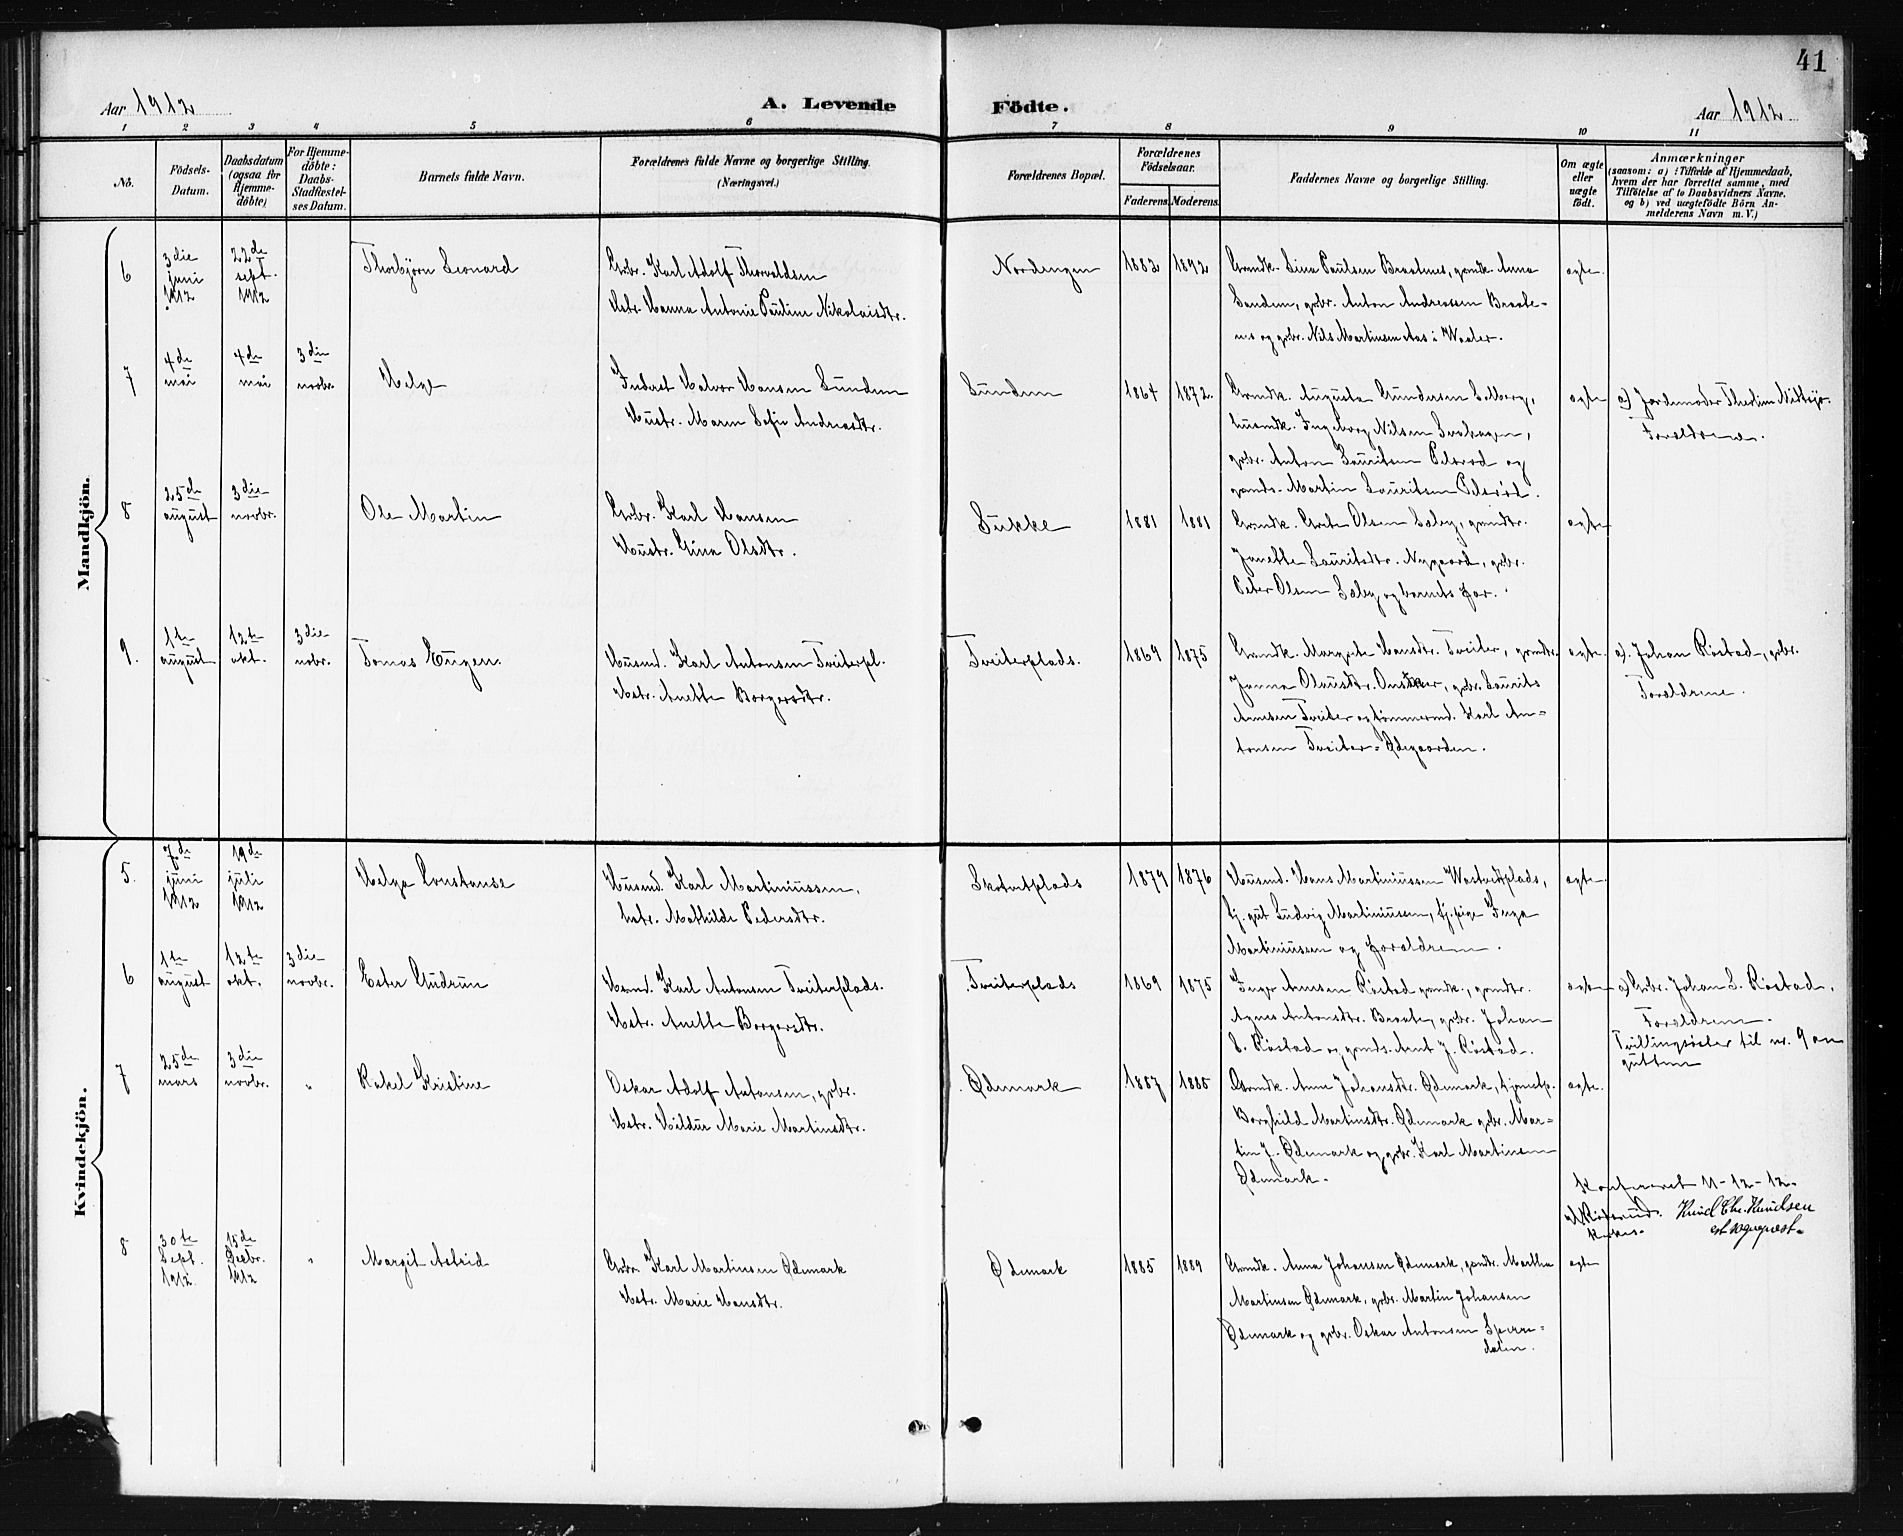 41
Aar 1912
A. Levende
Födte.
Aar 1912
1 2 3 4 5 6 7 8 9 10 11
No.
Födsels-
Datum.
Daabsdatum
(ogsaa for
Hjemme-
döbte)
For Hjemme-
döbte:
Daabs-
Stadfæstel-
ses Datum.
Barnets fulde Navn.
Forældrenes fulde Navne og borgerlige Stilling.
(Næringsvei.)
Forældrenes Bopæl.
Forældrenes
Födselsaar.
Faderens. Moderens.
Faddernes Navne og borgerlige Stilling.
Om ægte
eller
uægte
födt.
Anmærkninger
(saasom: a) i Tilfælde af Hjemmedaab,
hvem der har forrettet samme, med
Tilføielse af to Daabsvidners Navne.
og b) ved uægtefödte Börn An-
melderens Navn m. V.)
Mandkjön.
6
3die
juni
1912
22de
sept.
1912
Thorbjörn Leonard
Grbr. Karl Adolf Thorvaldsen
Hstr. Hanna Antonie Pauline Nikolaisdtr.
Nordengen
1882
1892
Grmdk. Lina Paulsen Braatenes, grmdk. Anna
Sanden, grbr. Anton Andreassen Braate-
nes og grbr. Nils Martinsen Aas i Waaler.
ægte.
7
4de
mai
4de
mai
3die
novbr.
Helge
Inderst Halvor Hansen Sunden
Hustr. Maren Sofie Andreasdtr.
Sunden
1864
1872.
Grmdk. Augusta Gundersen Solberg,
husmdk. Ingeborg Nilsen Svehagen,
grbr. Anton Lauritsen Pilsröd og
grmds. Martin Lauritsen Pilsröd.
ægte
a) Jordemoder Thedine Mittsjø.
Forældrene.
8
25de
august
3die
novbr.
Ole Martin
Grbr. Karl Hansen
Hustr. Gina Olsdtr.
Sukke
1881
1881
Grmdk. Grete Olsen Sæby, grmdtr.
Janette Lauritsdtr. Nygaard, grbr.
Peter Olsen Sæby og barnets far.
ægte
9.
1te
august
12te
okt.
3die
novbr.
Tomas Eugen.
Husmd. Karl Antonsen Tveiterpl.
Hstr. Anette Borgersdtr.
Tveiterplads.
1869
1875
Grmdk. Margrete Hansdtr. Tveiter, grmdtr.
Janna Olausdtr. Onsaker, grbr. Laurits
Arnesen Tveiter og tømmermd. Karl An-
tonsen Tveiter-Ødegaarden.
ægte.
a). Johan Röstad, grbr.
Forældrene.
Kvindekjön.
5.
7de
juni
1912
19de
juli
1912
Helga Constanse
Husmd. Karl Martiniussen,
hstr. Mathilde Pedersdtr.
Skotvetplads
1879
1876
Husmd. Hans Martiniussen Westvetplads,
tj. gut Ludvig Martiniussen, tj. pige Inga
Martiniussen og forældrene.
ægte.
6
1te
august
12te
okt.
3die
novbr.
Ester Gudrun
Husmd. Karl Antonsen Tveiterplads.
Hstr. Anette Borgersdtr.
Tveiterplads
1869
1875
Inger Arnesen Röstad grmdk., grmdtr.
Agnes Antonsdtr. Braate, grbr. Johan
L. Röstad og grmds. Arnt J. Röstad.
ægte
a) Grbr. Johan L. Röstad,
Forældrene.
Tvillingsöster til nr. 9 av
guttene
7
25de
mars
3die
novbr.
"
Rakel Kristine
Oskar Adolf Antonsen, grbr.
Hstr. Hildur Marie Martinsdtr.
Ødemark
1887
1885
Grmdk. Anne Johansdtr. Ødemark, hjemmep.
Borghild Martinsdtr. Ødemark grbr. Mar-
tin J. Ødemark og grbr. Karl Martinsen
Ødemark.
ægte.
Konfereret 11-12-12.
Knud Chr. Knudsen
est. sogneprest.
8
30te
Sept.
1912.
15de
Desbr.
1912
"
Margit Astrid
Grbr. Karl Martinsen Ødemark
Hstr. Marie Hansdtr.
Ødemark
1885
1889
Grmdk. Anna Johansen Ødemark, grmdtr. Martha
Martinsen Ødemark, grbr. Martin Johansen
Ødemark og grbr. Oskar Antonsen Sperre-
dalen.
ægte